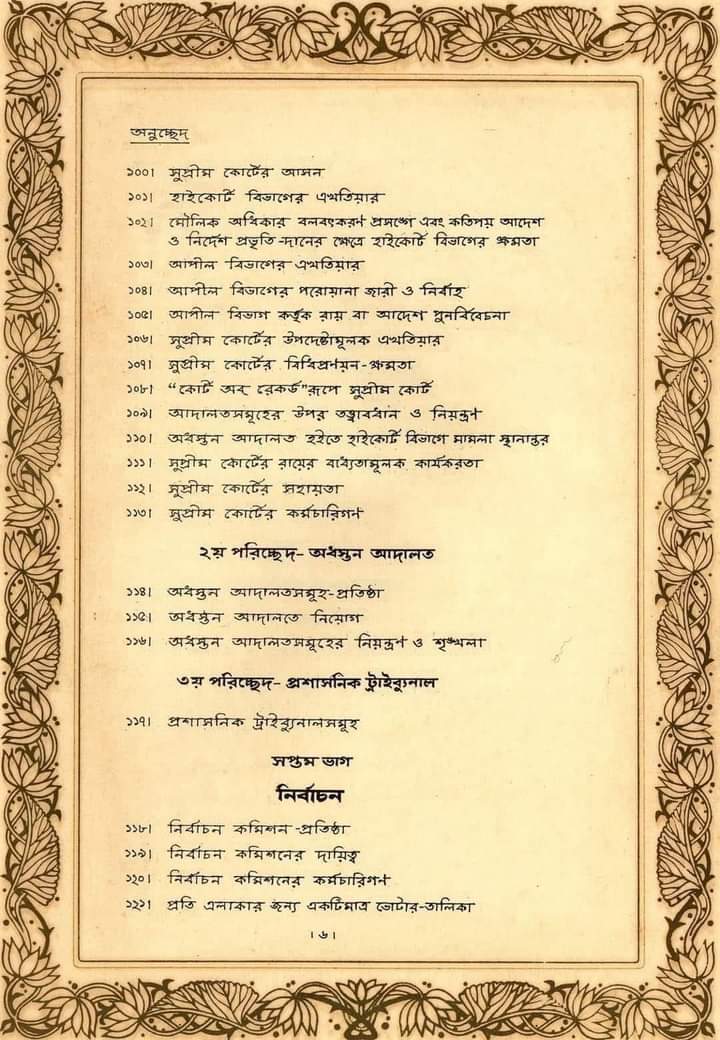 অনুচ্ছেদ
১০০। সুপ্রীম কোর্টের আসন
১০১। হাইকোর্ট বিভাগের এখতিয়ার
১০২। মৌলিক অধিকার বলবৎকরণ প্রসঙ্গে এবং কতিপয় আদেশ
ও নির্দেশ প্রভৃতি-দানের ক্ষেত্রে হাইকোর্ট বিভাগের ক্ষমতা
১০৩। আপীল বিভাগের এখতিয়ার
১০৪। আপীল বিভাগের পরোয়ানা জারী ও নির্বাহ
১০৫। আপীল বিভাগ কর্তৃক রায় বা আদেশ পুনর্বিবেচনা
১০৬। সুপ্রীম কোর্টের উপদেষ্টামূলক এখতিয়ার
১০৭। সুপ্রীম কোর্টের বিধিপ্রণয়ন-ক্ষমতা
১০৮। “কোর্ট অব্ রেকর্ড”রূপে সুপ্রীম কোর্ট
১০৯। আদালতসমূহের উপর তত্ত্বাবধান ও নিয়ন্ত্রণ
১১০। অধস্তন আদালত হইতে হাইকোর্ট বিভাগে মামলা স্থানান্তর
১১১। সুপ্রীম কোর্টের রায়ের বাধ্যতামূলক কার্যকরতা
১১২। সুপ্রীম কোর্টের সহায়তা
১১৩। সুপ্রীম কোর্টের কর্মচারিগণ
২য় পরিচ্ছেদ- অধস্তন আদালত
১১৪। অধস্তন আদালতসমূহ-প্রতিষ্ঠা
১১৫। অধস্তন আদালতে নিয়োগ
১১৬। অধস্তন আদালতসমূহের নিয়ন্ত্রণ ও শৃঙ্খলা
৩য় পরিচ্ছেদ- প্রশাসনিক ট্রাইব্যুনাল
১১৭। প্রশাসনিক ট্রাইব্যুনালসমূহ
সপ্তম ভাগ
নির্বাচন
১১৮। নির্বাচন কমিশন-প্রতিষ্ঠা
১১৯। নির্বাচন কমিশনের দায়িত্ব
১২০। নির্বাচন কমিশনের কর্মচারিগণ
১২১। প্রতি এলাকার জন্য একটিমাত্র ভোটার-তালিকা
।৬।